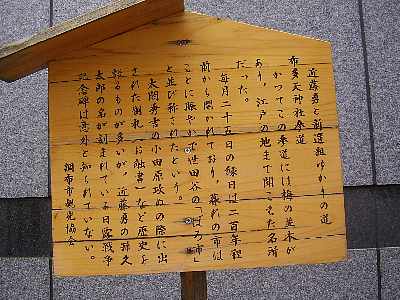 近藤勇と新選組ゆかりの道
布多天神社参道
かつてこの参道には梅の並木が
あり、江戸の地まで聞こえた名所
だった。
毎月二十五日の縁日は二百年程
前から開かれており、暮れの市は
ことに賑やかで世田谷の「ぼろ市」
と並び称されたという。
太閤秀吉の小田原攻めの際に出
された制札(に触書)など歴史を
語るものが多いが、近藤勇の孫久
太郎の名が刻まれている日露戦争
記念碑は意外と知られていない。
調布市観光協会